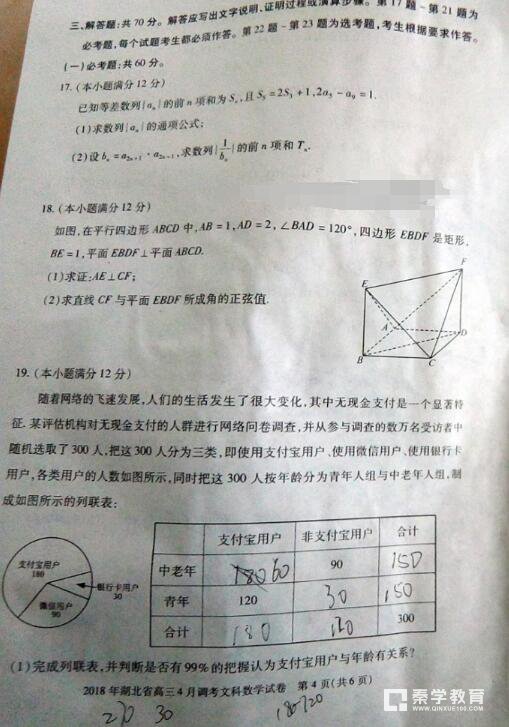 三、解答题:共70分。解答应写出文字说明、证明过程或演算步骤。第17题~第21题为
必考题,每个试题考生都必须作答。第22题~第23题为选考题,考生根据要求作答。
(一)必考题:共60分。
17.(本小题满分12分)
已知等差数列{aₙ}的前n项和为Sₙ,且S₅=2S₃+1,2a₅-a₉=1.
(1)求数列{aₙ}的通项公式;
(2)设bₙ=a₂ₙ₊₁·a₂ₙ₋₁,求数列{1/bₙ}的前n项和Tₙ.
18.(本小题满分12分)
如图,在平行四边形ABCD中,AB=1,AD=2,∠BAD=120°,四边形EBDF是矩形,
BE=1,平面EBDF⊥平面ABCD.
(1)求证:AE⊥CF;
(2)求直线CF与平面EBDF所成角的正弦值.
F
E
A
D
B
C
19.(本小题满分12分)
随着网络的飞速发展,人们的生活发生了很大变化,其中无现金支付是一个显著特
征.某评估机构对无现金支付的人群进行网络问卷调查,并从参与调查的数万名受访者中
随机选取了300人,把这300人分为三类,即使用支付宝用户、使用微信用户、使用银行卡
用户,各类用户的人数如图所示,同时把这300人按年龄分为青年人组与中老年人组,制
成如图所示的列联表:
支付宝用户
180
银行卡用户
30
微信用户
90
支付宝用户 非支付宝用户 合计
中老年 60 90 150
青年 120 30 150
合计 180 120 300
(1)完成列联表,并判断是否有99%的把握认为支付宝用户与年龄有关系?
2018年湖北省高三4月调考文科数学试卷 第4页(共6页)
秦学教育
WWW.QINXUE100.COM